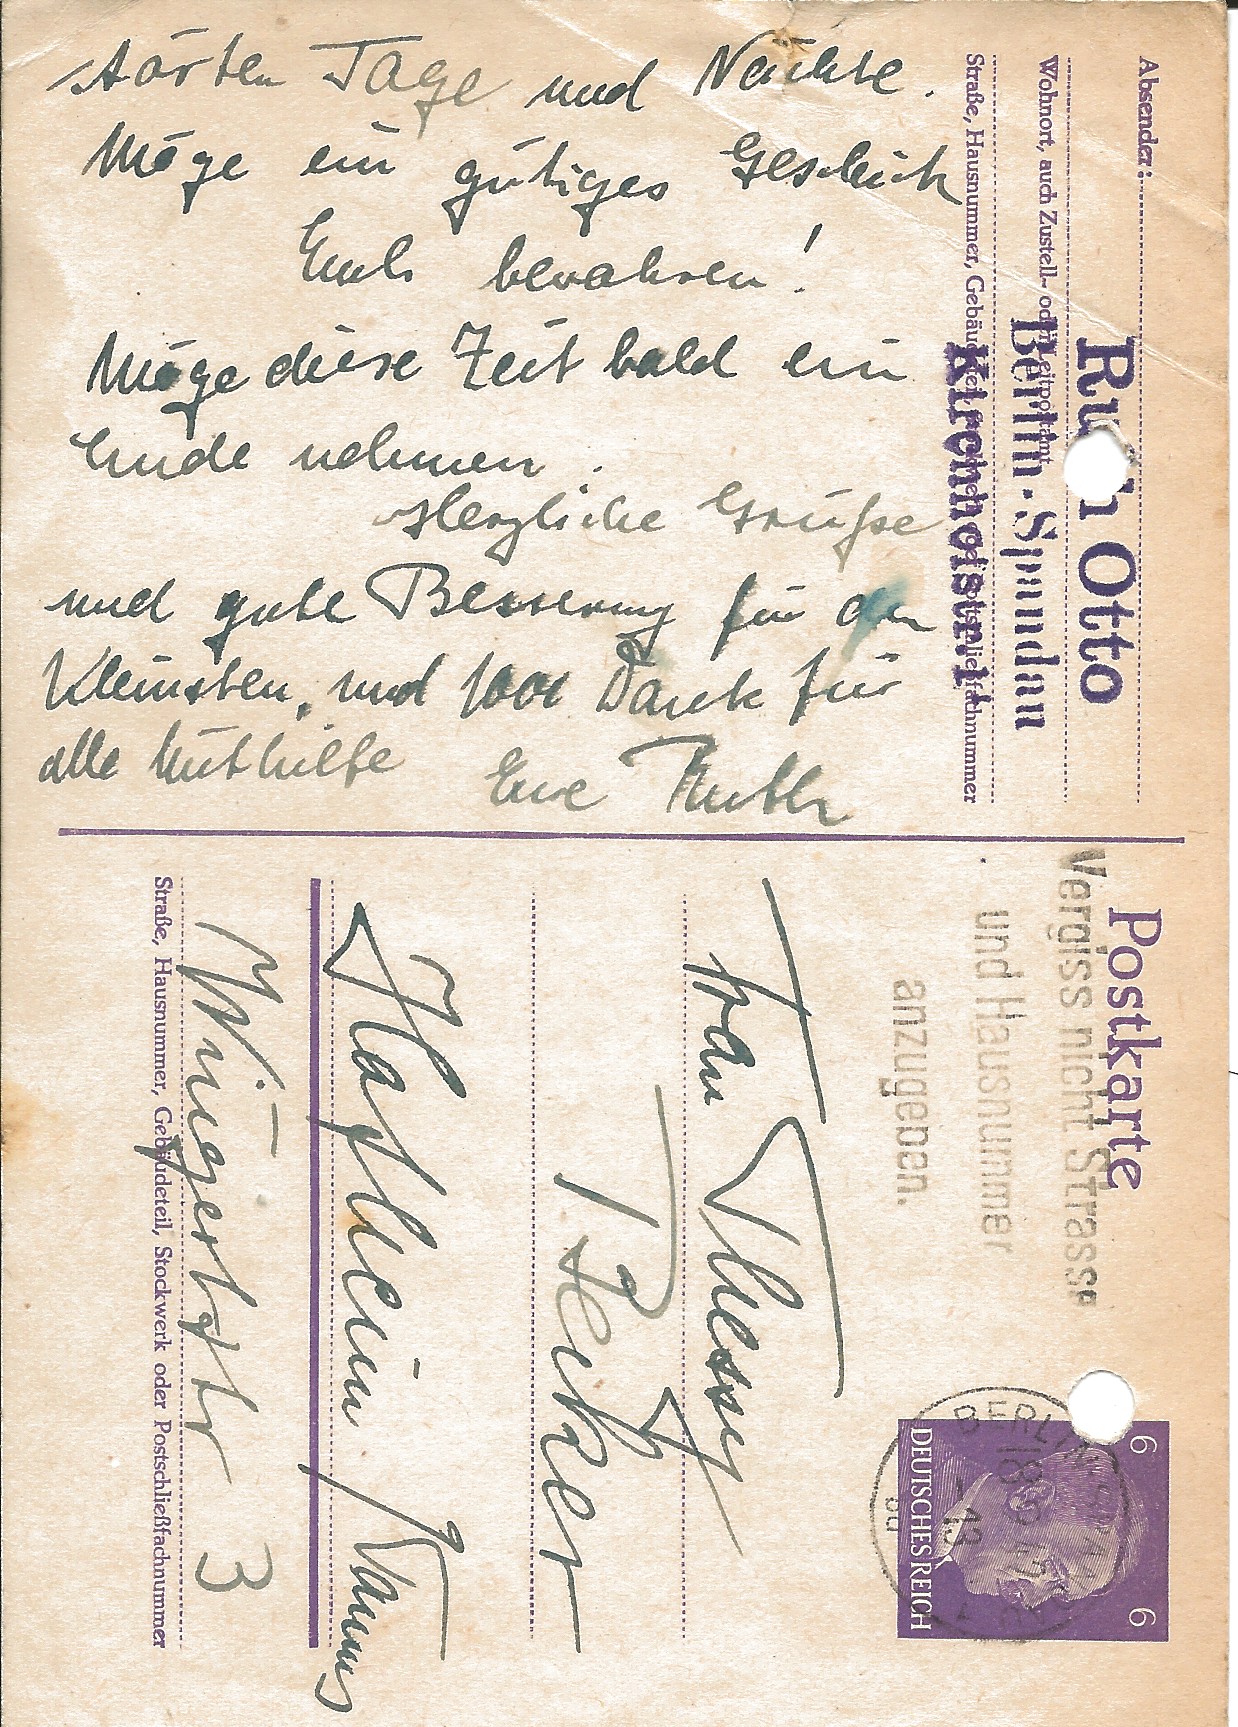 störten Tage und Nächte.
Möge ein gütiges Geschick
Euch bewahren!
Möge diese Zeit bald ein
Ende nehmen.
Herzliche Grüße
und gute Besserung für den
Kleinsten, und 1000 Dank für
alle Mithilfe Eure Ruth
Absender:
Ruth Otto
Berlin-Spandau
Kirchhofstr.
Wohnort, auch Zustell- oder Leitpostamt
Straße, Hausnummer, Gebäudeteil, Stockwerk oder Postschließfachnummer
Postkarte
Vergiss nicht Strasse
und Hausnummer
anzugeben.
6 6
DEUTSCHES REICH
BERLIN
Frau
Becker
Hofheim / Taunus
Wingertstr 3
Straße, Hausnummer, Gebäudeteil, Stockwerk oder Postschließfachnummer